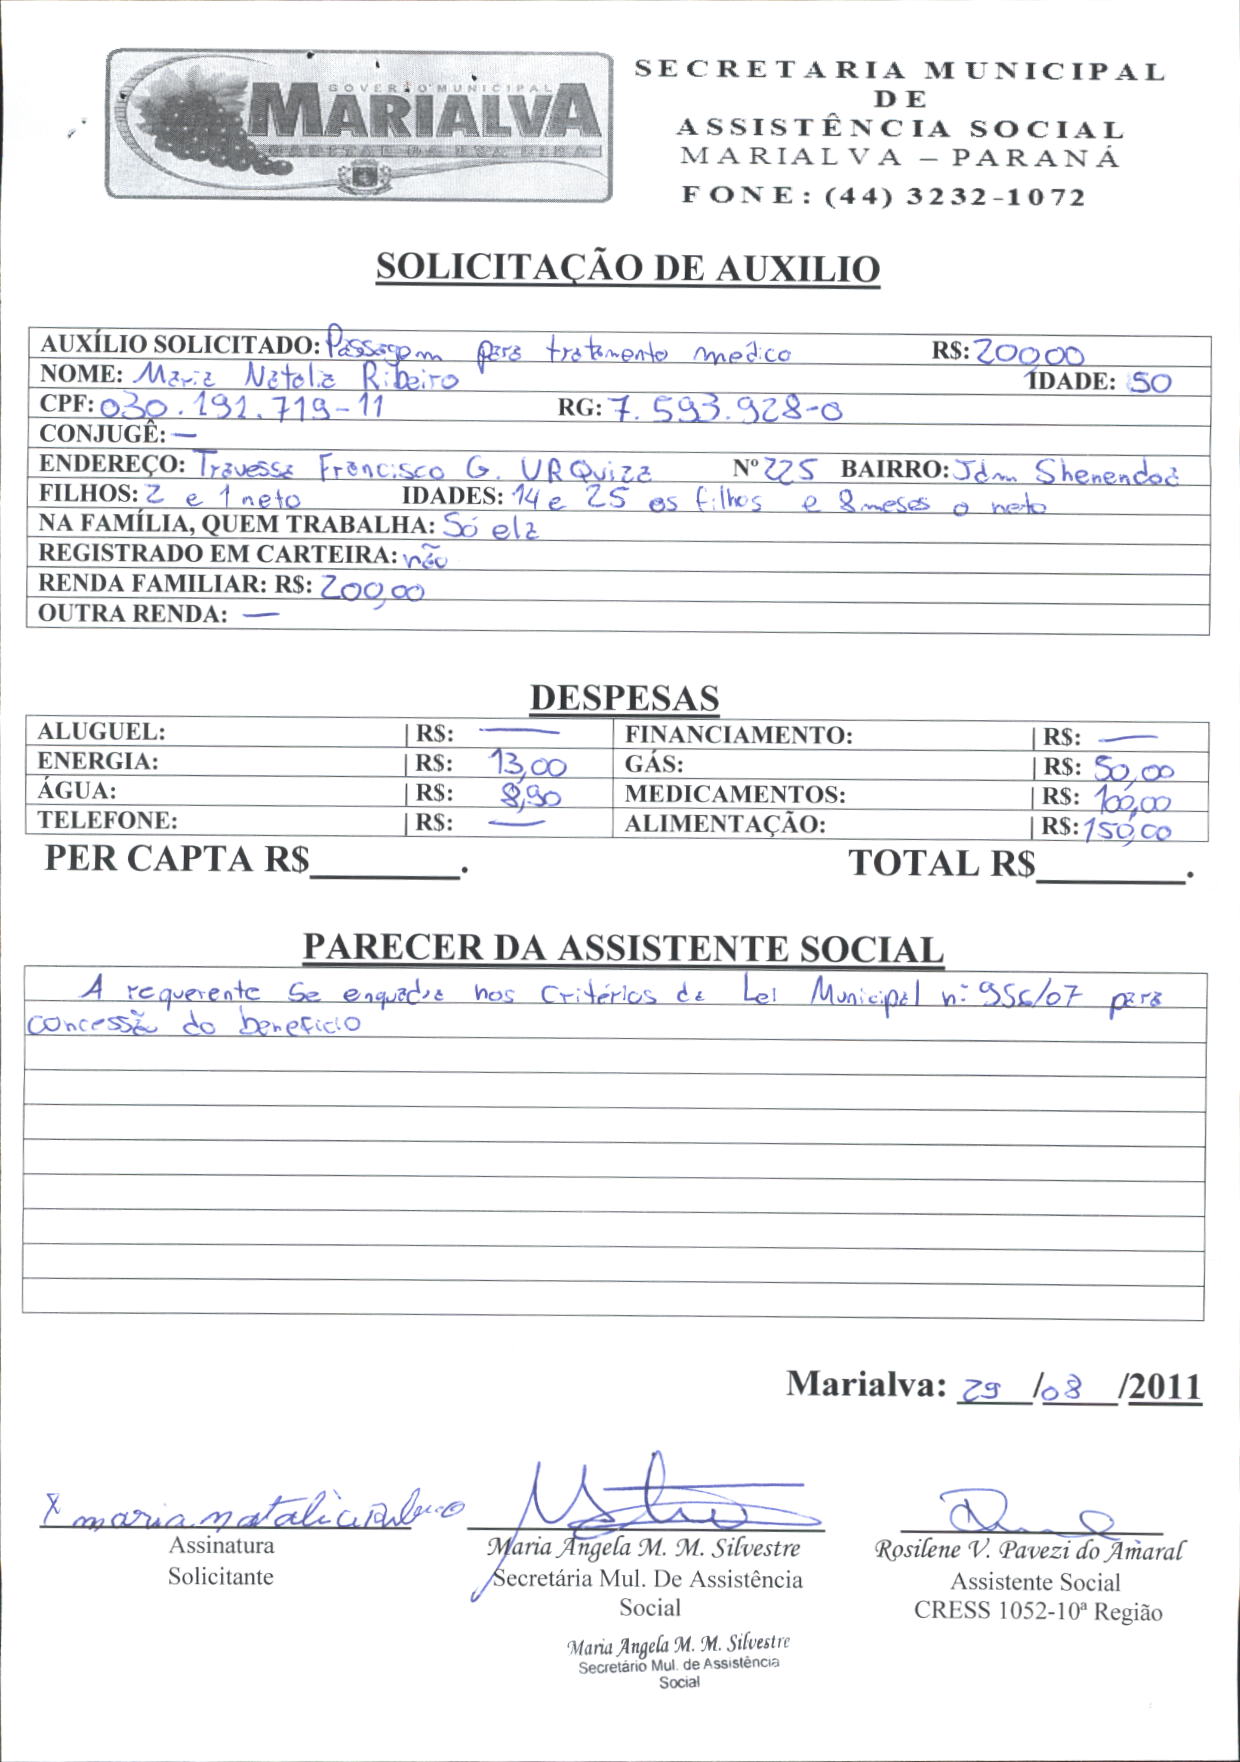 GOVERNO MUNICIPAL
MARIALVA
CAPITAL DA UVA FINA
SECRETARIA MUNICIPAL
DE
ASSISTÊNCIA SOCIAL
MARIALVA – PARANÁ
FONE: (44) 3232-1072
SOLICITAÇÃO DE AUXILIO
AUXÍLIO SOLICITADO: Passagem para tratamento medico R$: 200,00
NOME: Maria Natalia Ribeiro IDADE: 50
CPF: 030.191.719-11 RG: 7.593.928-0
CONJUGÊ: —
ENDEREÇO: Travessa Francisco G. URQuiza Nº 225 BAIRRO: Jdm Shenendoá
FILHOS: 2 e 1 neto IDADES: 14 e 25 os filhos e 8 meses o neto
NA FAMÍLIA, QUEM TRABALHA: Só ela
REGISTRADO EM CARTEIRA: não
RENDA FAMILIAR: R$: 200,00
OUTRA RENDA: —
DESPESAS
ALUGUEL: | R$: — FINANCIAMENTO: | R$: —
ENERGIA: | R$: 13,00 GÁS: | R$: 50,00
ÁGUA: | R$: 8,90 MEDICAMENTOS: | R$: 100,00
TELEFONE: | R$: — ALIMENTAÇÃO: | R$: 150,00
PER CAPTA R$________. TOTAL R$________.
PARECER DA ASSISTENTE SOCIAL
A requerente se enquadra nos critérios da Lei Municipal nº 956/07 para
concessão do beneficio
Marialva: 29 /08 /2011
X maria natalia Ribeiro
Assinatura
Solicitante
Maria Angela M. M. Silvestre
Secretária Mul. De Assistência
Social
Maria Angela M. M. Silvestre
Secretário Mul. de Assistência
Social
Rosilene V. Pavezi do Amaral
Assistente Social
CRESS 1052-10ª Região